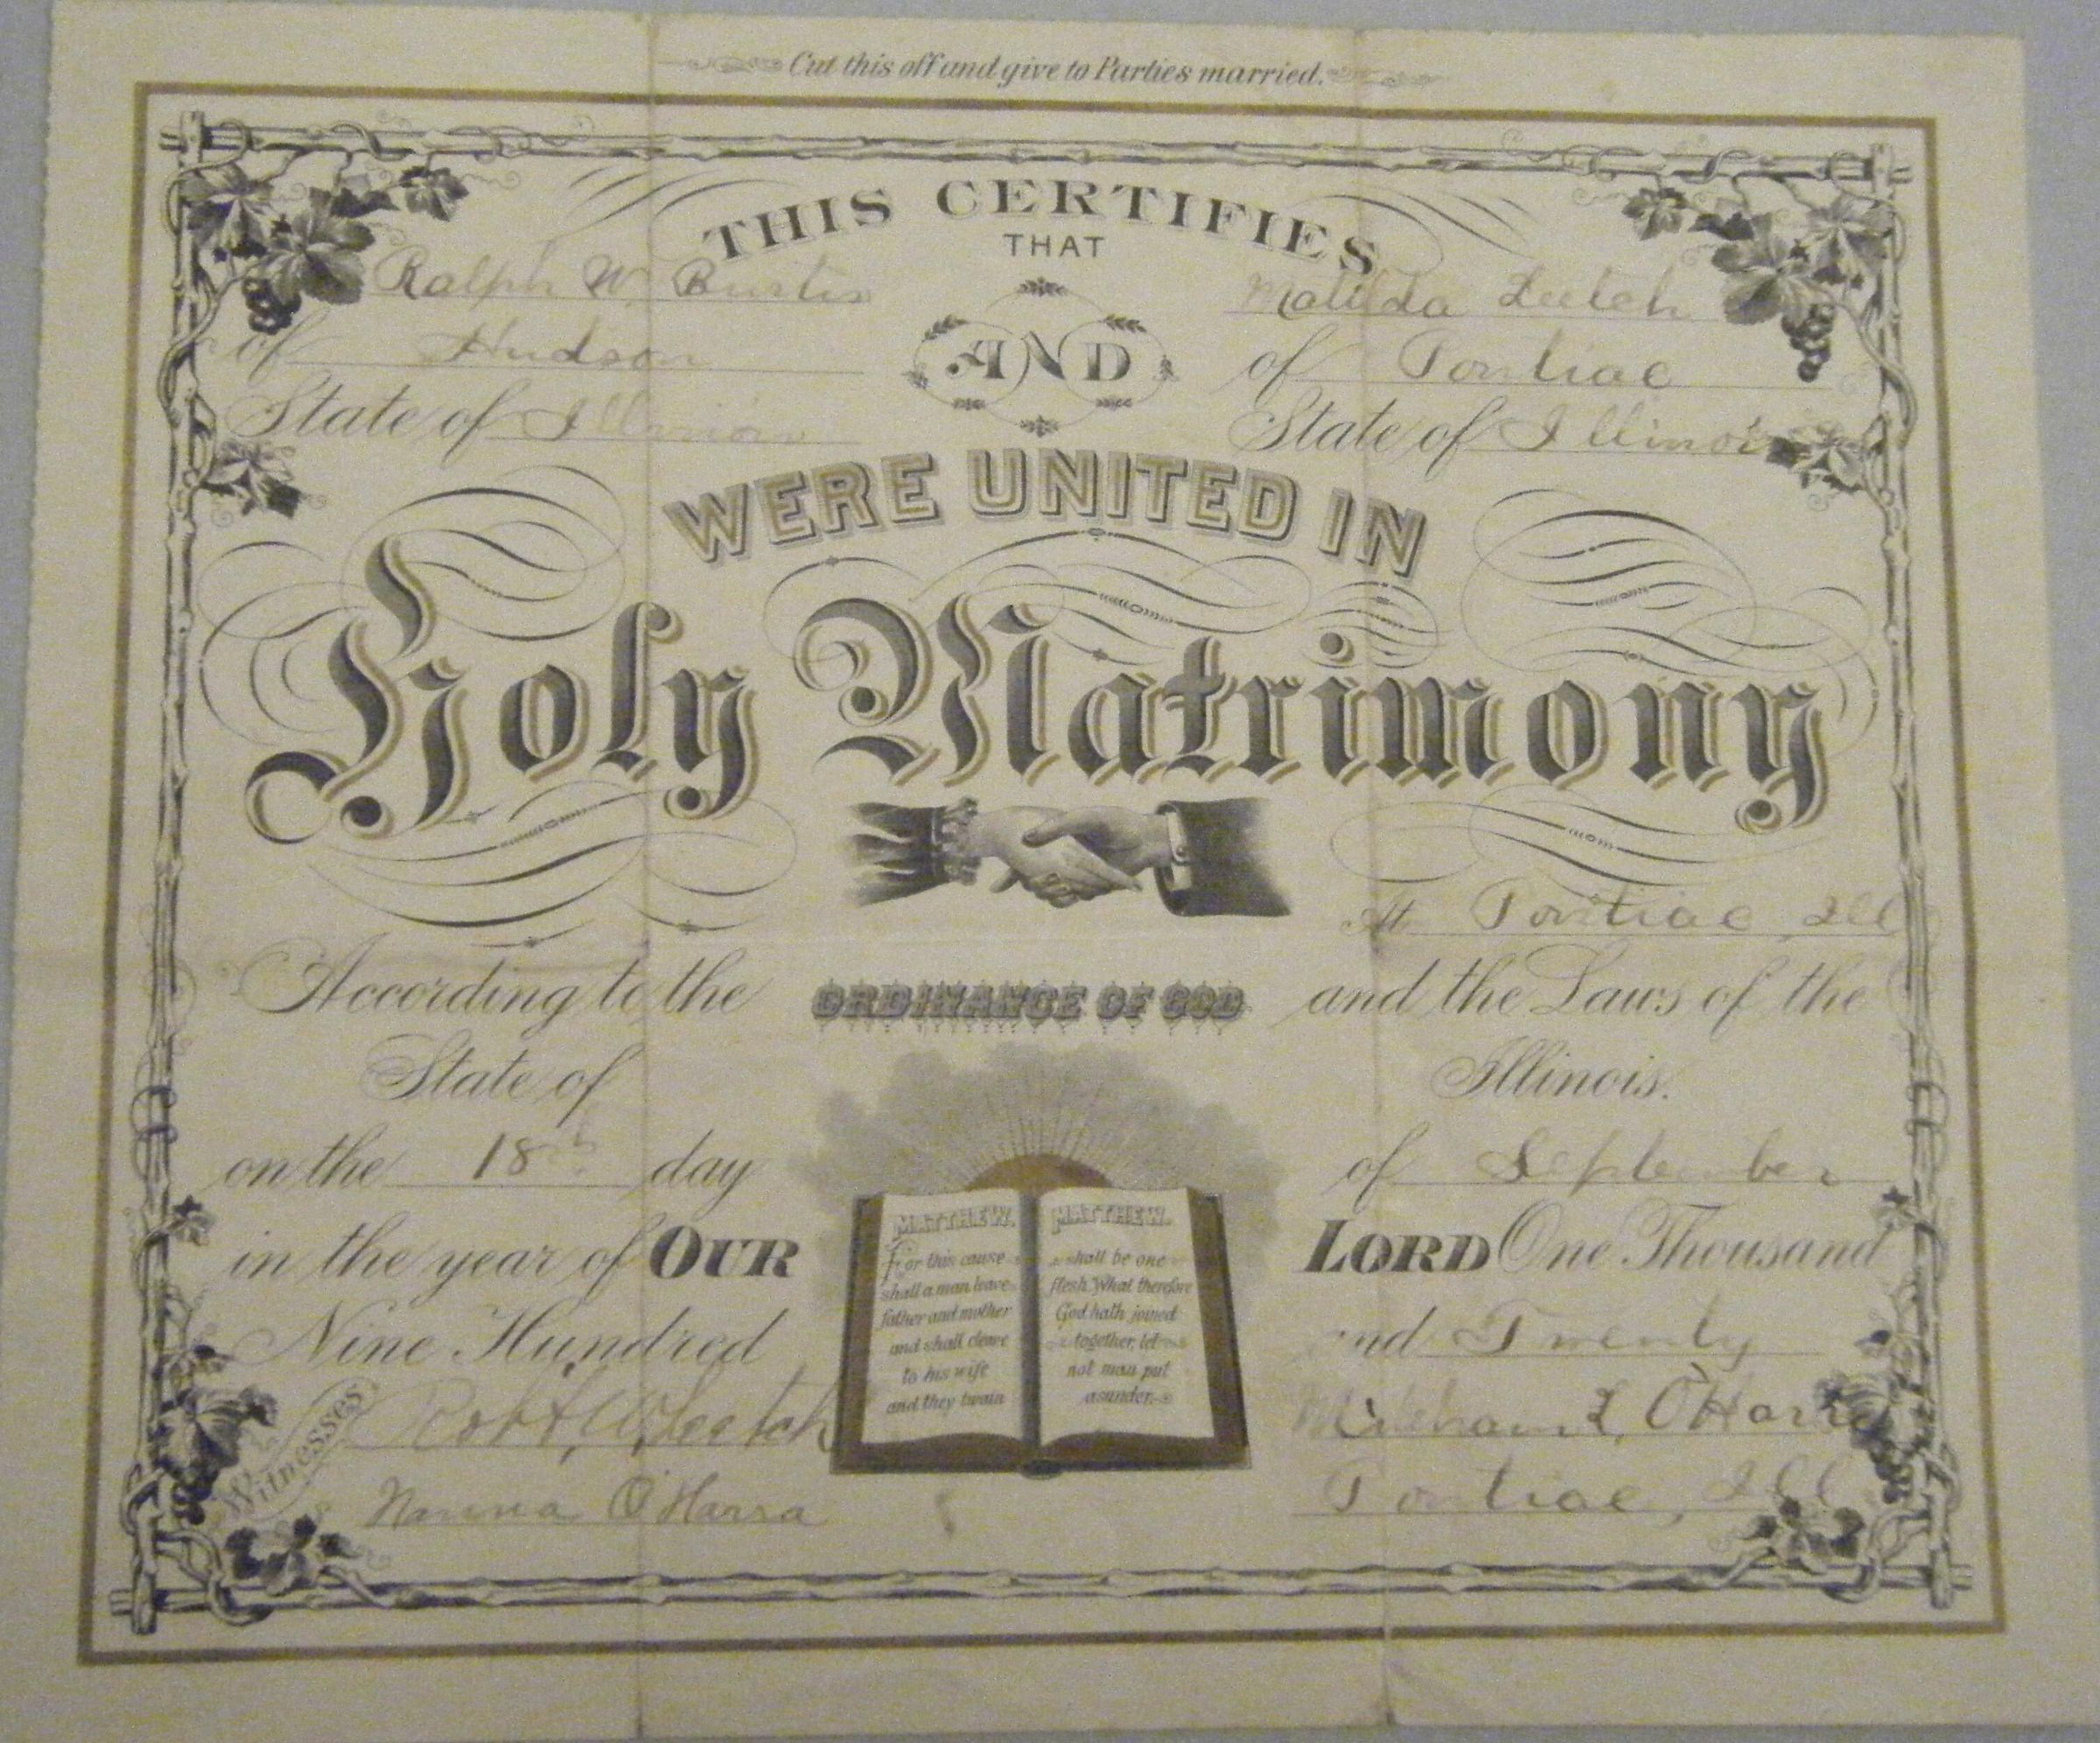 Cut this off and give to Parties married.
THIS CERTIFIES
THAT
Ralph W. Bustin
of Hudson
State of Illinois
AND
Matilda Leetch
of Pontiac
State of Illinois
WERE UNITED IN
Holy Matrimony
At Pontiac, Ill
According to the ORDINANCE OF GOD and the Laws of the
State of Illinois.
on the 18th day of September
in the year of OUR LORD One Thousand
Nine Hundred and Twenty
MATTHEW.
For this cause
shall a man leave
father and mother
and shall cleave
to his wife
and they twain
MATTHEW.
shall be one
flesh. What therefore
God hath joined
together, let
not man put
asunder.
Witnesses
Robt. W. Leetch
Nanna O'Harra
L. O'Harra
Pontiac, Ill